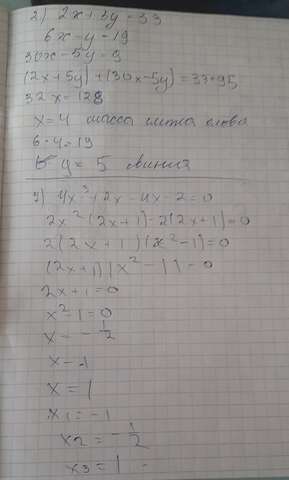 2) 2x+5y=33
6x-y=19
30x-5y=9
(2x+5y)+(30x-5y)=33+95
32x=128
x=4 масса слитка олова
6·4=19
y=5 свинца
3) 4x³+2x-4x-2=0
2x²(2x+1)-2(2x+1)=0
2(2x+1)(x²-1)=0
(2x+1)(x²-1)=0
2x+1=0
x²-1=0
x=-1/2
x-1
x=1
x1=-1
x2=-1/2
x3=1